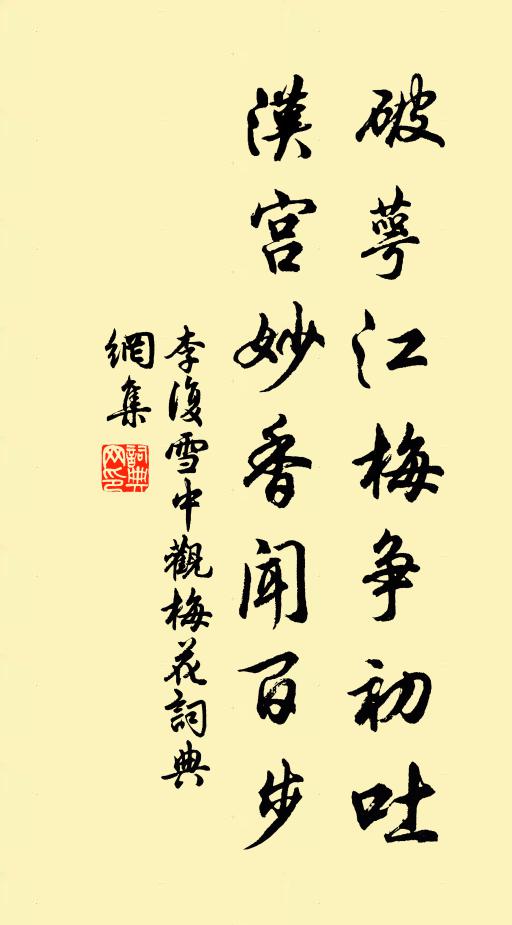 破萼江梅争初吐
漢宫妙香聞百步
李復雪中觀梅花詞典
網集
詞典
网印